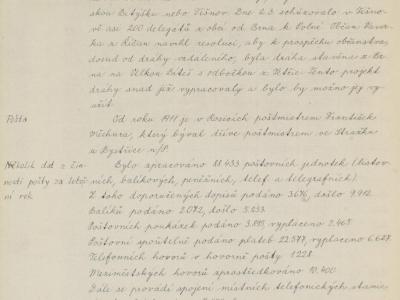 skou Bitýšku nebo Tišnov. Dne 2.3. scházovalo v Tišno-
vě asi 200 delegátů z obcí od Brna k Polné. Občan Pava-
ka z Říčan navrhl resoluci, aby k prospěchu občanstva,
dosud od dráhy vzdáleného, byla dráha stavěna z Br-
na na Velkou Bíteš s odbočkou z Tento projekt
dráhy snad již vypracovaly a bylo by možno jej vy-
užít.
Pošta
Od roku 1911 je v Rosicích poštmistrem František
Vichura, který býval dříve poštmistrem ve Strážku
u Bystřice n/P.
Několik dat z čin-
nosti pošty za letoš-
ní rok
Bylo zpracováno 88.433 poštovních jednotek (listov-
ních, balíkových, peněžních, telef. a telegrafních).
Z toho doporučených dopisů podáno 3676, došlo 9.912.
Balíků podáno 2.072, došlo 5.233.
Poštovních poukázek podáno 3.895, vyplaceno 2.465.
Poštovní spořitelně podáno plateb 22.577, vyplaceno 6.627.
Telefonních hovorů v hovorně pošty 1228.
Meziměstských hovorů zprostředkováno 10.400.
Dále se provádí spojení místních telefonických stanic